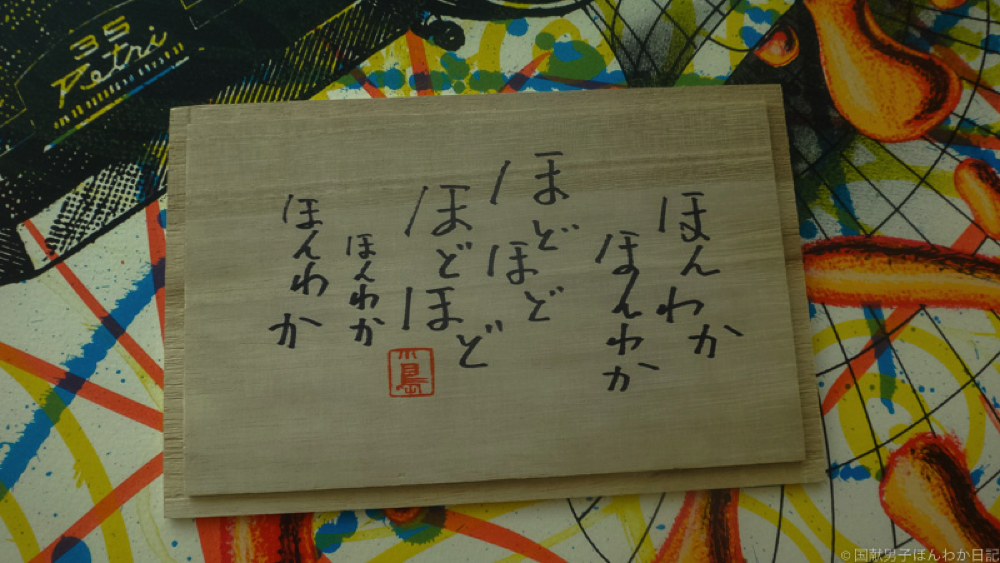 ほんわか
ほんわか
ほどほど
ほどほど
ほんわか
ほんわか
35
Petri
© 国献男子ほんわか日記